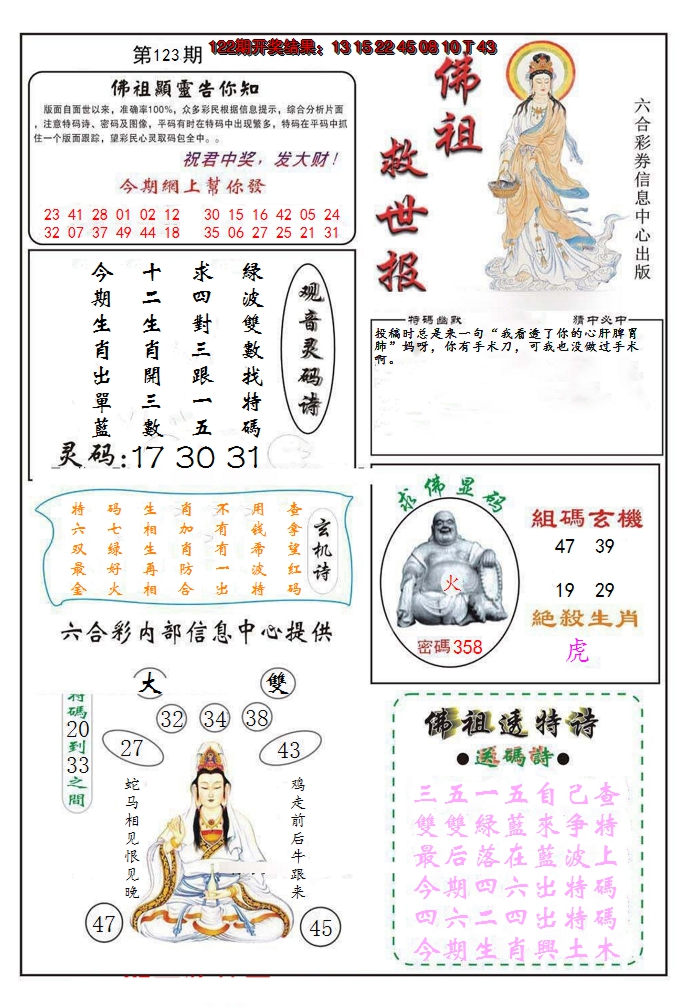 第123期
122期开奖结果：13 15 22 45 08 10 T 43
佛祖顯靈告你知
版面自面世以来，准确率100%，众多彩民根据信息提示，综合分析片面
，注意特码诗、密码及图像，平码有时在特码中出现繁多，特码在平码中抓
住一个版面跟踪，望彩民心灵取码包全中。。
祝君中奖，发大财！
今期網上幫你發
23 41 28 01 02 12 30 15 16 42 05 24
32 07 37 49 44 18 35 06 27 25 21 31
佛祖
救世报
六合彩券信息中心出版
观音灵码诗
綠波雙數找特碼
求四對三跟一五
十二生肖開三數
今期生肖出單藍
灵码:17 30 31
特碼幽默 猜中必中
投稿时总是来一句“我看透了你的心肝脾胃
肺”妈呀，你有手术刀，可我也没做过手术
啊。
玄机诗
特码生肖不用查
六七相加有钱拿
双绿生肖有希望
最好再防一波红
金火相合出特码
六合彩内部信息中心提供
求佛显码
火
密碼358
組碼玄機
47 39
19 29
絶殺生肖
虎
大 雙
32 34 38
27 43
特碼20到33之間
蛇马相见恨见晚
鸡走前后牛跟来
47 45
佛祖透特诗
●送碼詩●
三五一五自己查
雙雙綠藍來争特
最后落在藍波上
今期四六出特碼
四六二四出特碼
今期生肖興土木